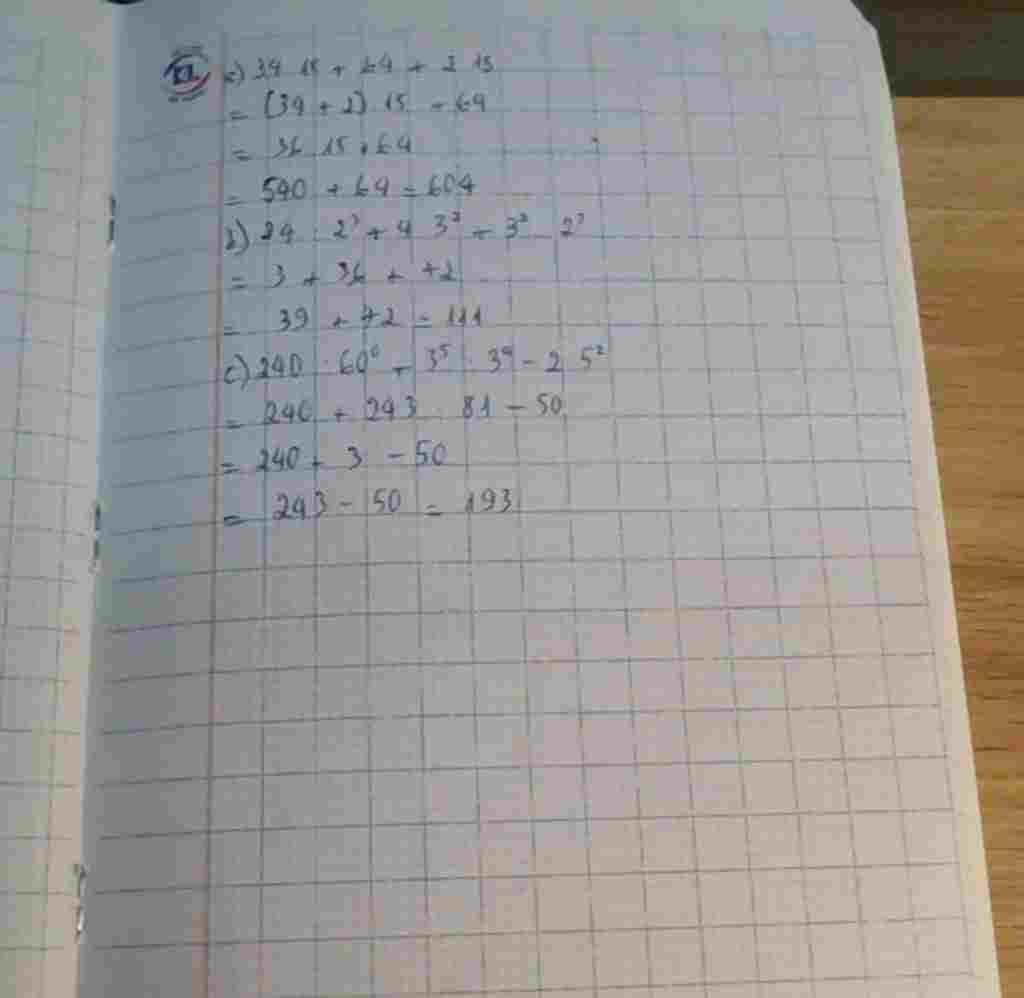 a) 34 15 + 64 + 2 15
= (34 + 2) 15 + 64
= 36 15 + 64
= 540 + 64 = 604
b) 24 : 2³ + 4 3² + 3² 2³
= 3 + 36 + 72
= 39 + 72 = 111
c) 240 · 60⁰ + 3⁵ : 3⁴ - 2 5²
= 240 + 243 : 81 - 50
= 240 + 3 - 50
= 243 - 50 = 193